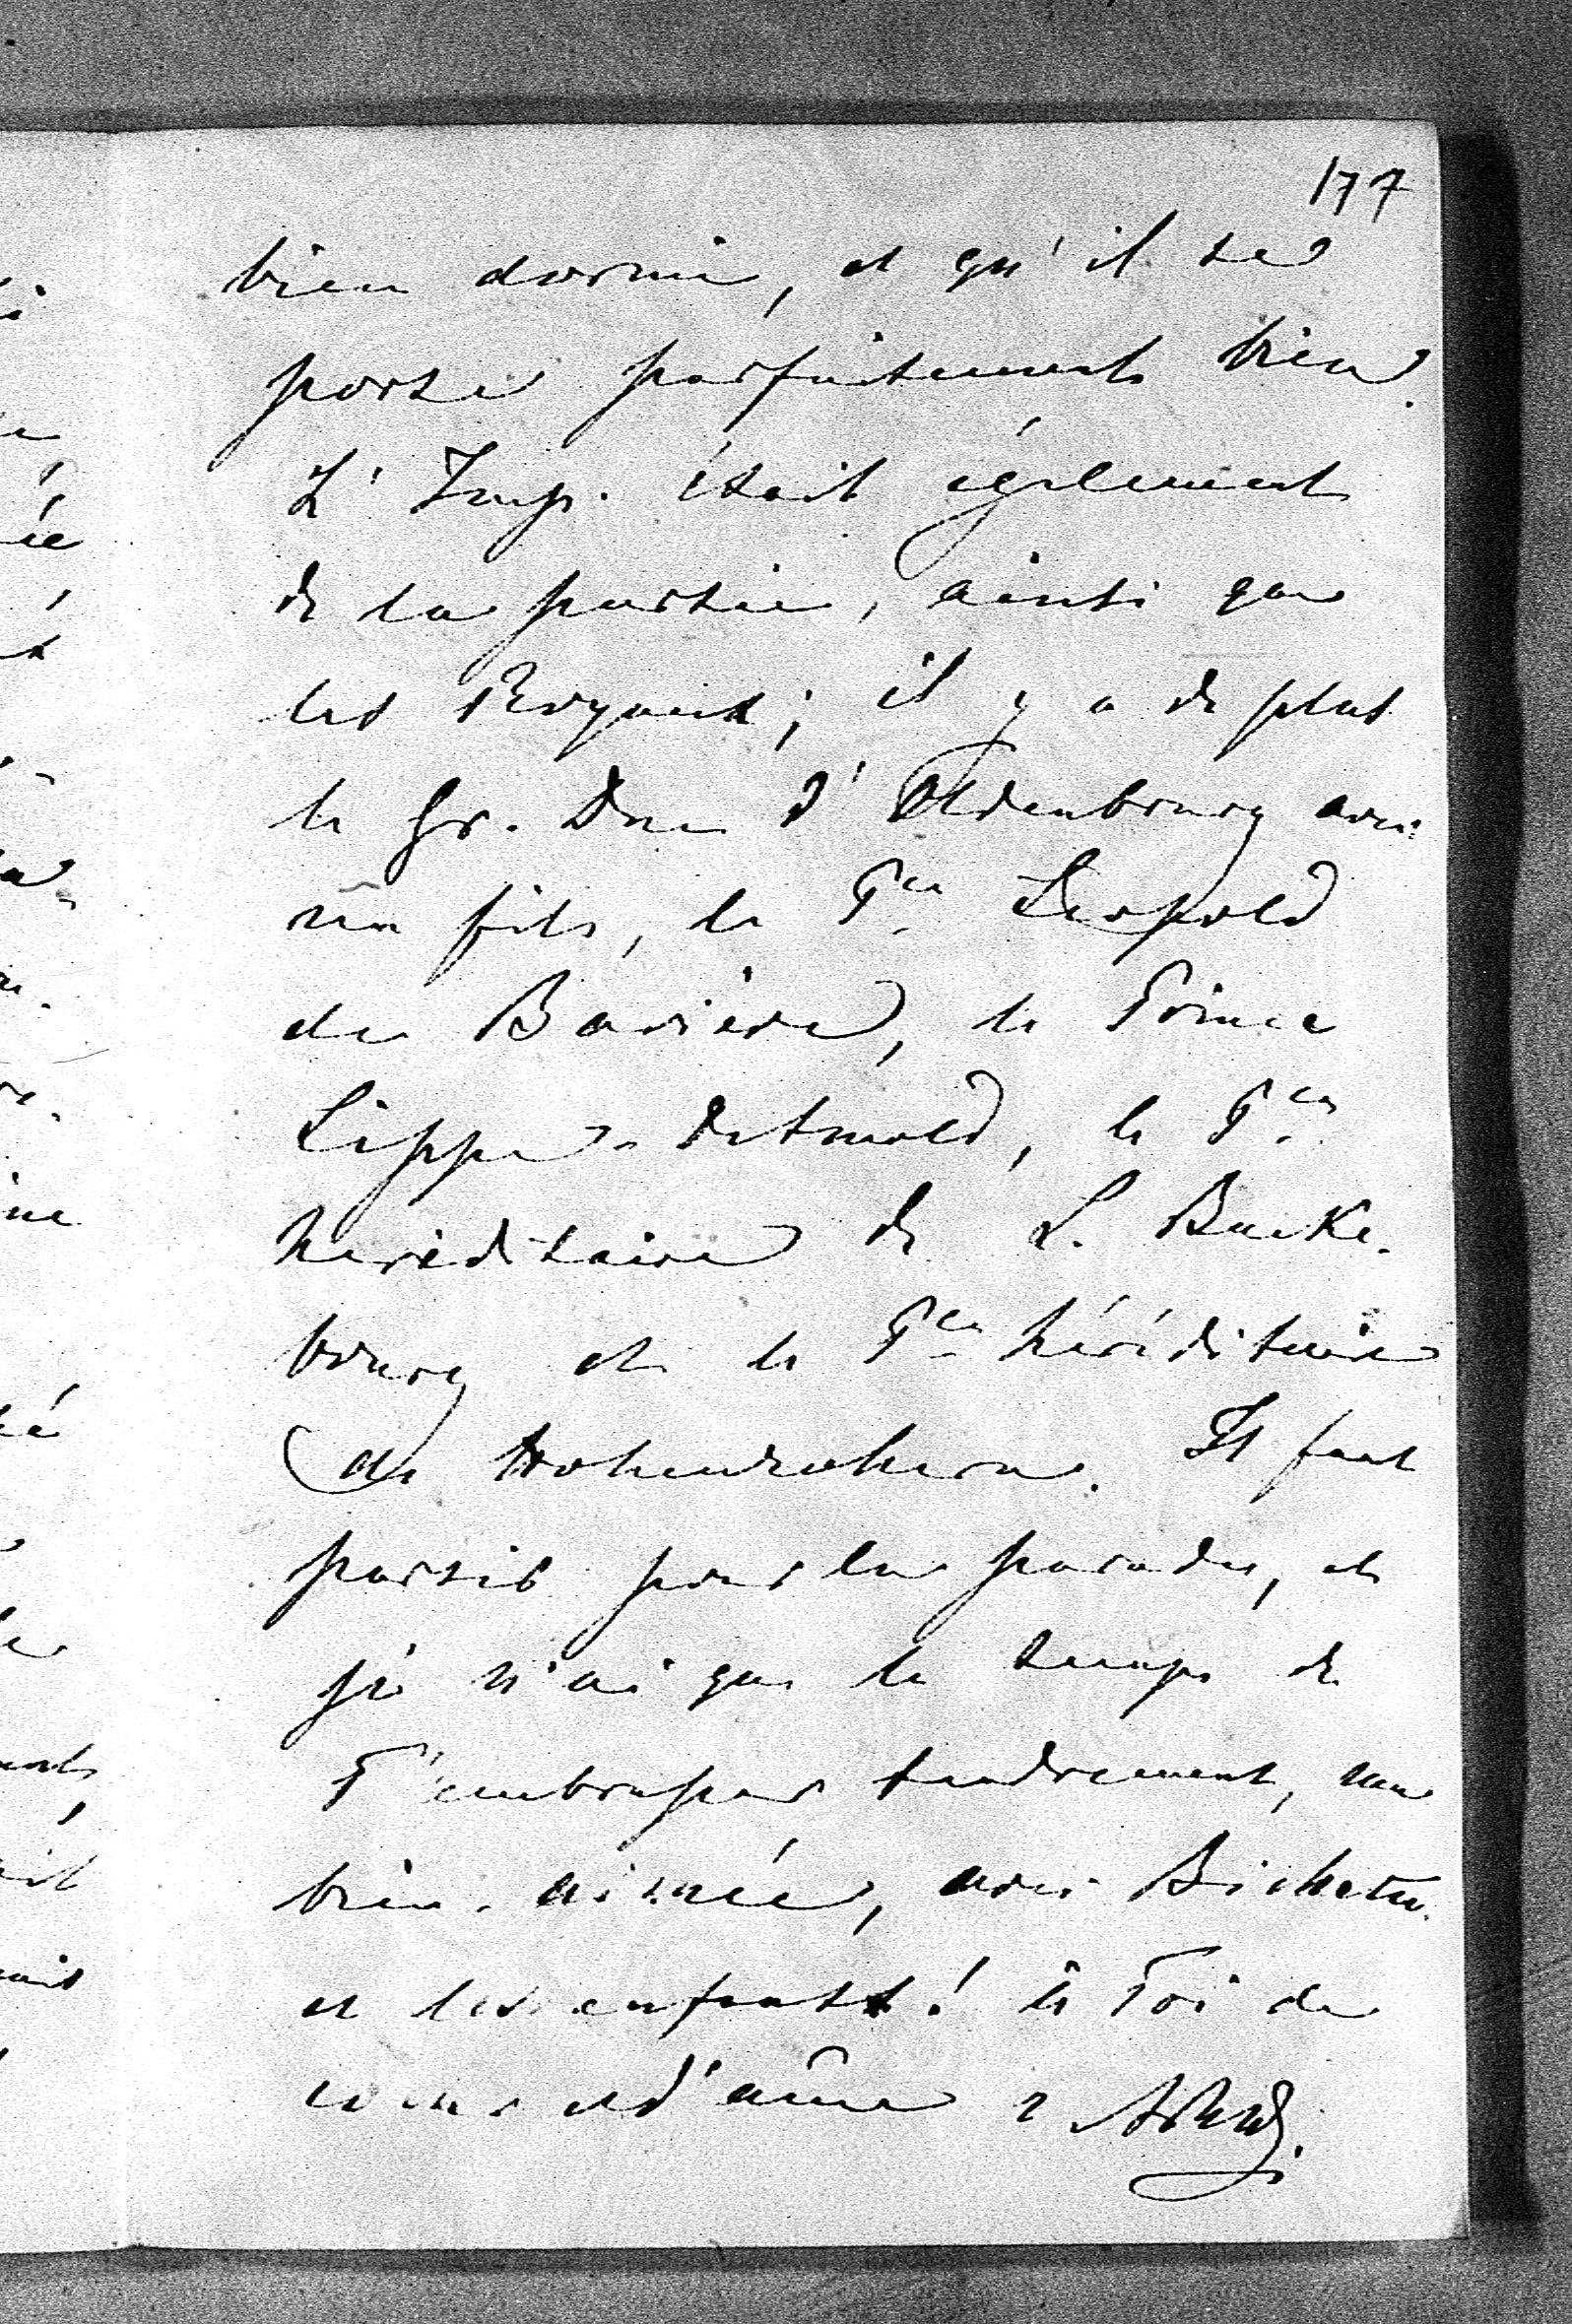 177
bien dormi, et qu'il se
porte parfaitement bien.
L'Imp. était également
de la partie, ainsi que
les Royaux; il y a de plus
le Gr. Duc d'Oldenbourg avec
son fils, le Pce Leopold
de Bavière, le Prince
Lippe-Detmold, le Pce
héréditaire de L. Bucke-
bourg et le Pce héréditaire
de Hohenzolern. Il faut
partir pour la parade, et
je n'ai que le temps de
T'embrasser tendrement, ma
bien-aimée, avec Bichette
et les enfants! à Toi de
coeur et d'âme